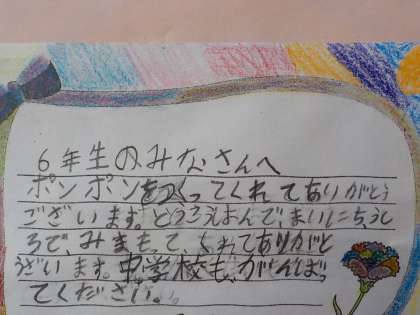 6年生のみなさんへ
ポンポンをつくってくれてありがとう
ございます。どうろえよんで、まいにち、うし
ろで、みまもって、くれてありがと
うざいます。中学校も、がんばっ
てください。